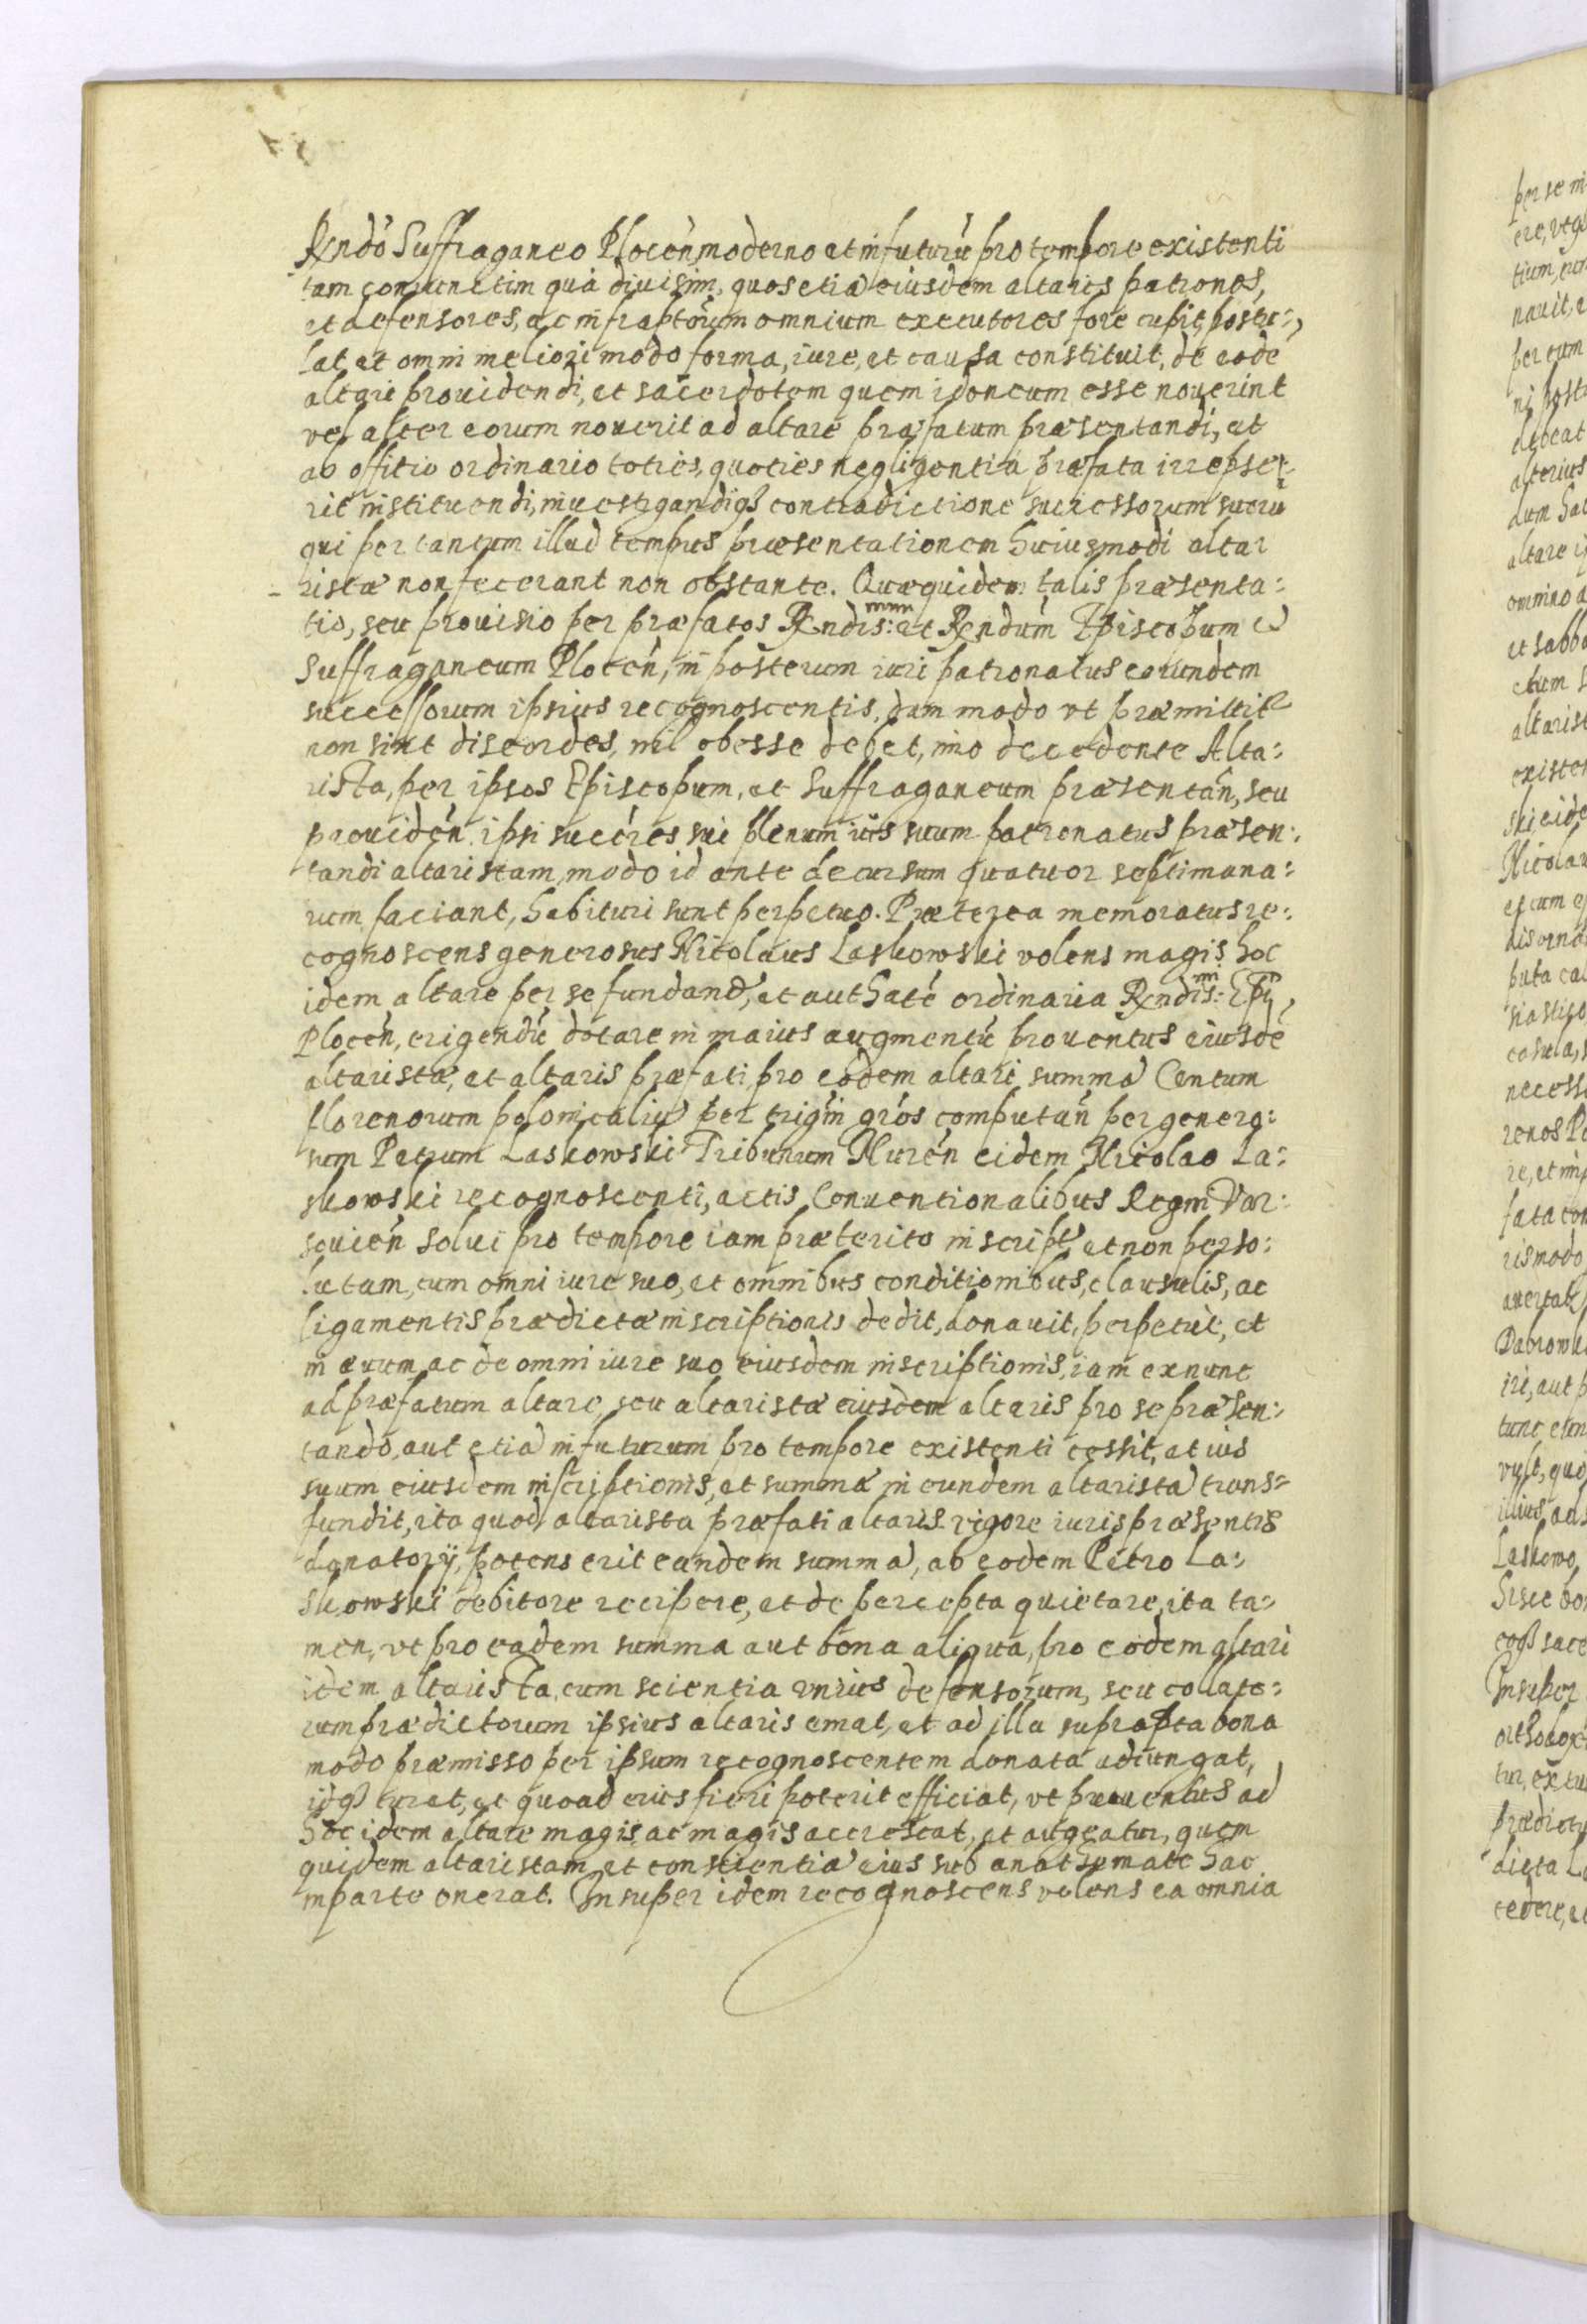 Rndo Suffraganeo Plocen moderno et in futurú pro tempore existenti
tam coniunctim quá diuisim, quos etiá eiusdem altaris patronos,
et defensores, ac infraptórum omnium executores fore cupit, postu:,
lat et omni meliori modo forma, iure, et causa constituit, de eodé
altari prouidendi, et sacerdotem quem idoneum esse nouerint
vel alter eorum nouerit ad altare præfatum præsentandi, et
ab offitio ordinario toties, quoties negligentia præfata irrepse:
rit instituendi, inuestigandiq3 contradictione successorum suorú
qui per tantum illud tempus præsentationem huiusmodi altar
ristæ non fecerant non obstante. Quæquidem talis præsenta:
tio, seu prouisio per præfatos Rndis:mum et Rendum Episcopum et
Suffraganeum Plocén, in posterum iuri patronatus eorundem
successorum ipsius recognoscentis, dum modo vt præmittit
non sint discordes, nil obesse debet, imo decedente Alta:
rista, per ipsos Episcopum, et Suffraganeum præsentán, seu
prouidén ipsi succéres sui plenum ius suum patronatus præsen:
tandi altaristam, modo id ante decursum quatuor septimana:
rum faciant, habituri sunt perpetuo. Præterea memoratus re:
cognoscens generosus Nicolaus Laskowski volens magis hoc
idem altare per se fundand, et authaté ordinaria Rndis:mi Epi
Plocén, erigendú dotare in maius augmentú prouentus eiusdé
altaristæ, et altaris præfati, pro eodem altari summá Centum
florenorum polonicaliú per trigin grós compután per genero:
sum Petrum Laskowski Tribunum Nurén eidem Nicolao La:
skowski recognoscenti, actis Conuentionalibus Regni Var:
souién solui pro tempore iam præterito inscript, et non perso:
lutam, cum omni iure suo, et omnibus conditionibus, clausulis, ac
ligamentis prædictæ inscriptionis dedit, donauit, perpetué, et
in æuum, ac de omni iure suo eiusdem inscriptionis, iam exnunc
ad præfatum altare, seu altaristæ eiusdem altaris pro se præsen:
tando, aut etiá in futurum pro tempore existenti cessit, et ius
suum eiusdem inscriptionis, et summæ in eundem altaristá trans=
fundit, ita quod altarista præfati altaris rigore iuris præsentis
donatorÿ, potens erit eandem summá, ab eodem Petro La:
skowski debitore recipere, et de percepta quietare, ita ta:
men, vt pro eadem summa aut bona aliqua, pro eodem altari
idem altarista, cum scientia vnius defensorum, seu collato:
rum prædictorum ipsius altaris emat, et ad illa suprapta bona
modo præmisso per ipsum recognoscentem donata adiungat,
idq3 curet, et quoad eius fieri poterit efficiat, vt prouentus ad
hoc idem altare magis ac magis accrescat, et augeatur, quem
quidem altaristam, et conscientiá eius sub anathemate hac
in parte onerat. Insuper idem recognoscens volens ea omnia